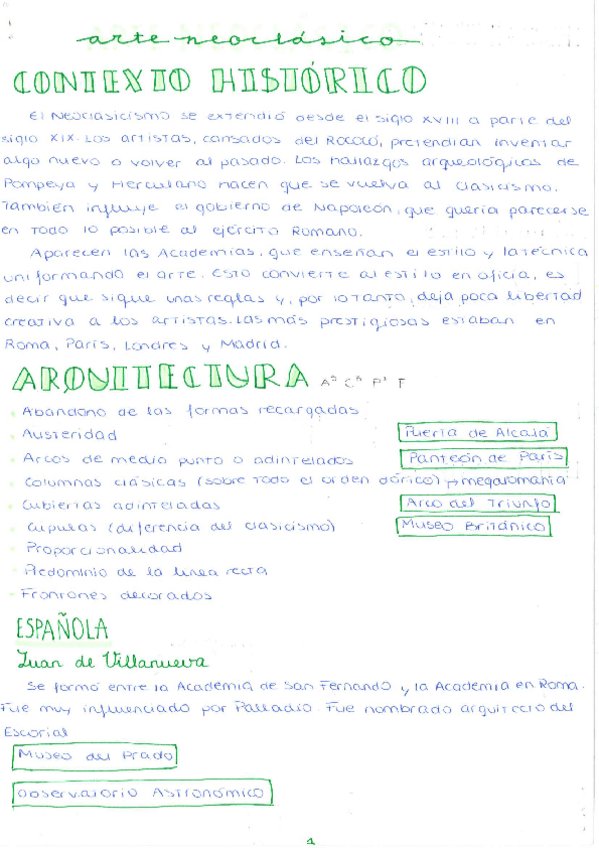 arte neoclásico
CONTEXTO HISTÓRICO
El Neoclasicismo se extendió desde el siglo XVIII a parte del
siglo XIX. Los artistas, cansados del Rococó, pretendían inventar
algo nuevo o volver al pasado. Los hallazgos arqueológicos de
Pompeya y Herculano hacen que se vuelva al clasicismo.
También influye el gobierno de Napoleón, que quería parecerse
en todo lo posible al ejército Romano.
Aparecen las Academias, que enseñan el estilo y la técnica
uniformando el arte. Esto convierte al estilo en oficia, es
decir que sigue unas reglas y, por lo tanto, deja poca libertad
creativa a los artistas. Las más prestigiosas estaban en
Roma, París, Londres y Madrid.
ARQUITECTURA
Abandono de las formas recargadas
Austeridad
Puerta de Alcalá
Arcos de medio punto o adintelados
Panteón de París
Columnas clásicas (sobre todo el orden dórico) → megaromanía
Cubiertas adinteladas
Arco del Triunfo
Cúpulas (diferencia del clasicismo)
Museo Británico
Proporcionalidad
Predominio de la línea recta
Frontones decorados
ESPAÑOLA
Juan de Villanueva
Se formó entre la Academia de San Fernando y la Academia en Roma.
Fue muy influenciado por Palladio. Fue nombrado arquitecto del
Escorial
Museo del Prado
Observatorio Astronómico
1